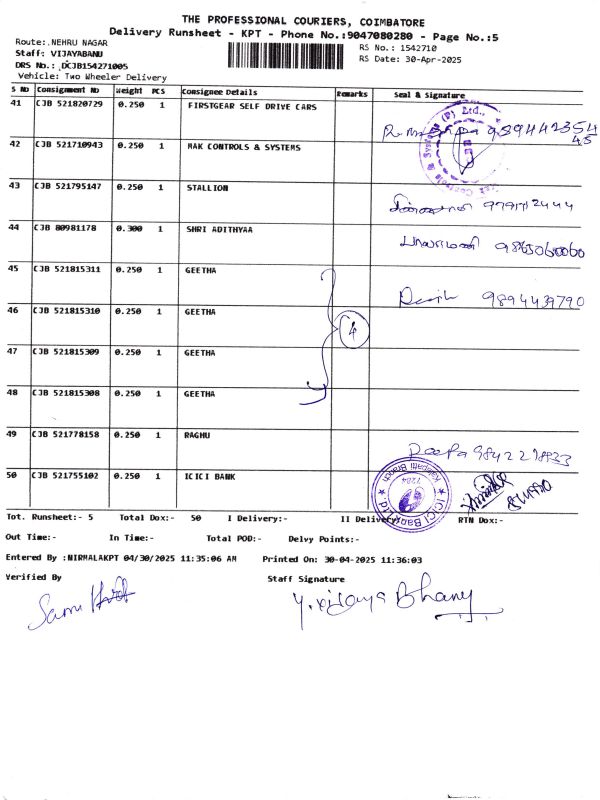 THE PROFESSIONAL COURIERS, COIMBATORE
Delivery Runsheet - KPT - Phone No.:9047080280 - Page No.:5
Route:.NEHRU NAGAR
RS No.: 1542710
Staff: VIJAYABANU
RS Date: 30-Apr-2025
DRS No.: DCJB154271005
Vehicle: Two Wheeler Delivery
S No Consignment No Weight PCS Consignee Details Remarks Seal & Signature
41 CJB 521820729 0.250 1 FIRSTGEAR SELF DRIVE CARS
42 CJB 521710943 0.250 1 MAK CONTROLS & SYSTEMS
43 CJB 521795147 0.250 1 STALLION
44 CJB 80981178 0.300 1 SHRI ADITHYAA
9865060060
45 CJB 521815311 0.250 1 GEETHA
9894439790
46 CJB 521815310 0.250 1 GEETHA
4
47 CJB 521815309 0.250 1 GEETHA
48 CJB 521815308 0.250 1 GEETHA
49 CJB 521778158 0.250 1 RAGHU
Deepa
50 CJB 521755102 0.250 1 ICICI BANK
ICICI Bank Ltd
Kalapatti Branch
7284
Tot. Runsheet:- 5 Total Dox:- 50 I Delivery:- II Delivery:- RTN Dox:-
Out Time:- In Time:- Total POD:- Delvy Points:-
Entered By :NIRMALAKPT 04/30/2025 11:35:06 AM Printed On: 30-04-2025 11:36:03
Verified By Staff Signature
Y. Vijaya Bhanu